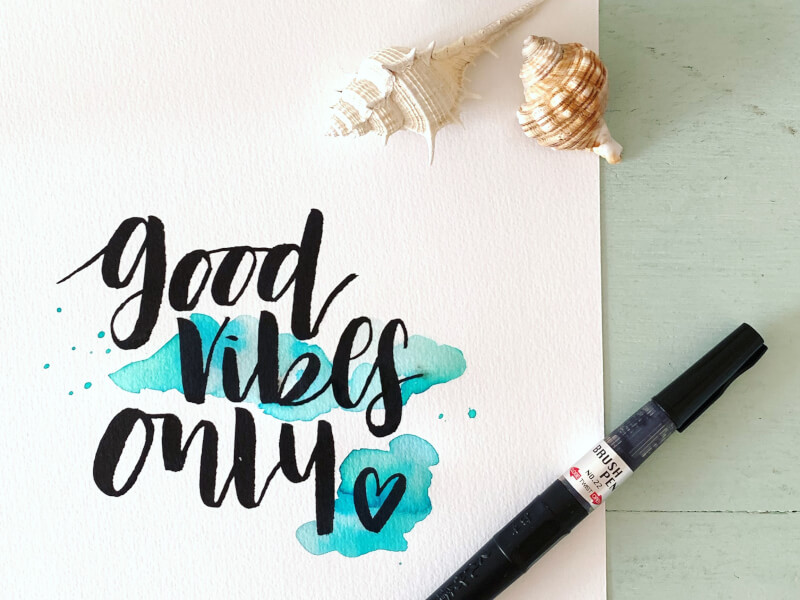 good
vibes
only
BRUSH
PEN
NO.22
TWIST